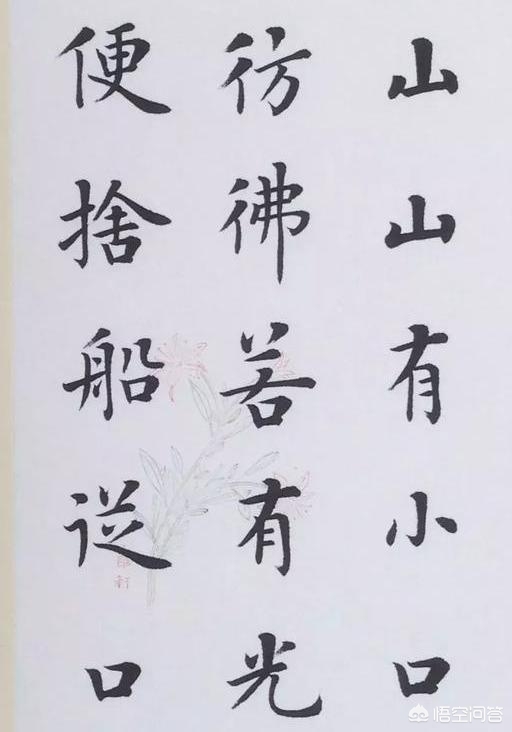 山山有小口
彷彿若有光
便捨船從口
悟空问答